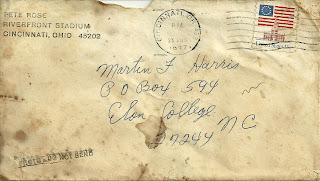 PETE ROSE
RIVERFRONT STADIUM
CINCINNATI, OHIO 45202
CINCINNATI, OH
PM
1977
Martin F Harris
P O Box 594
Elon College
NC
27244